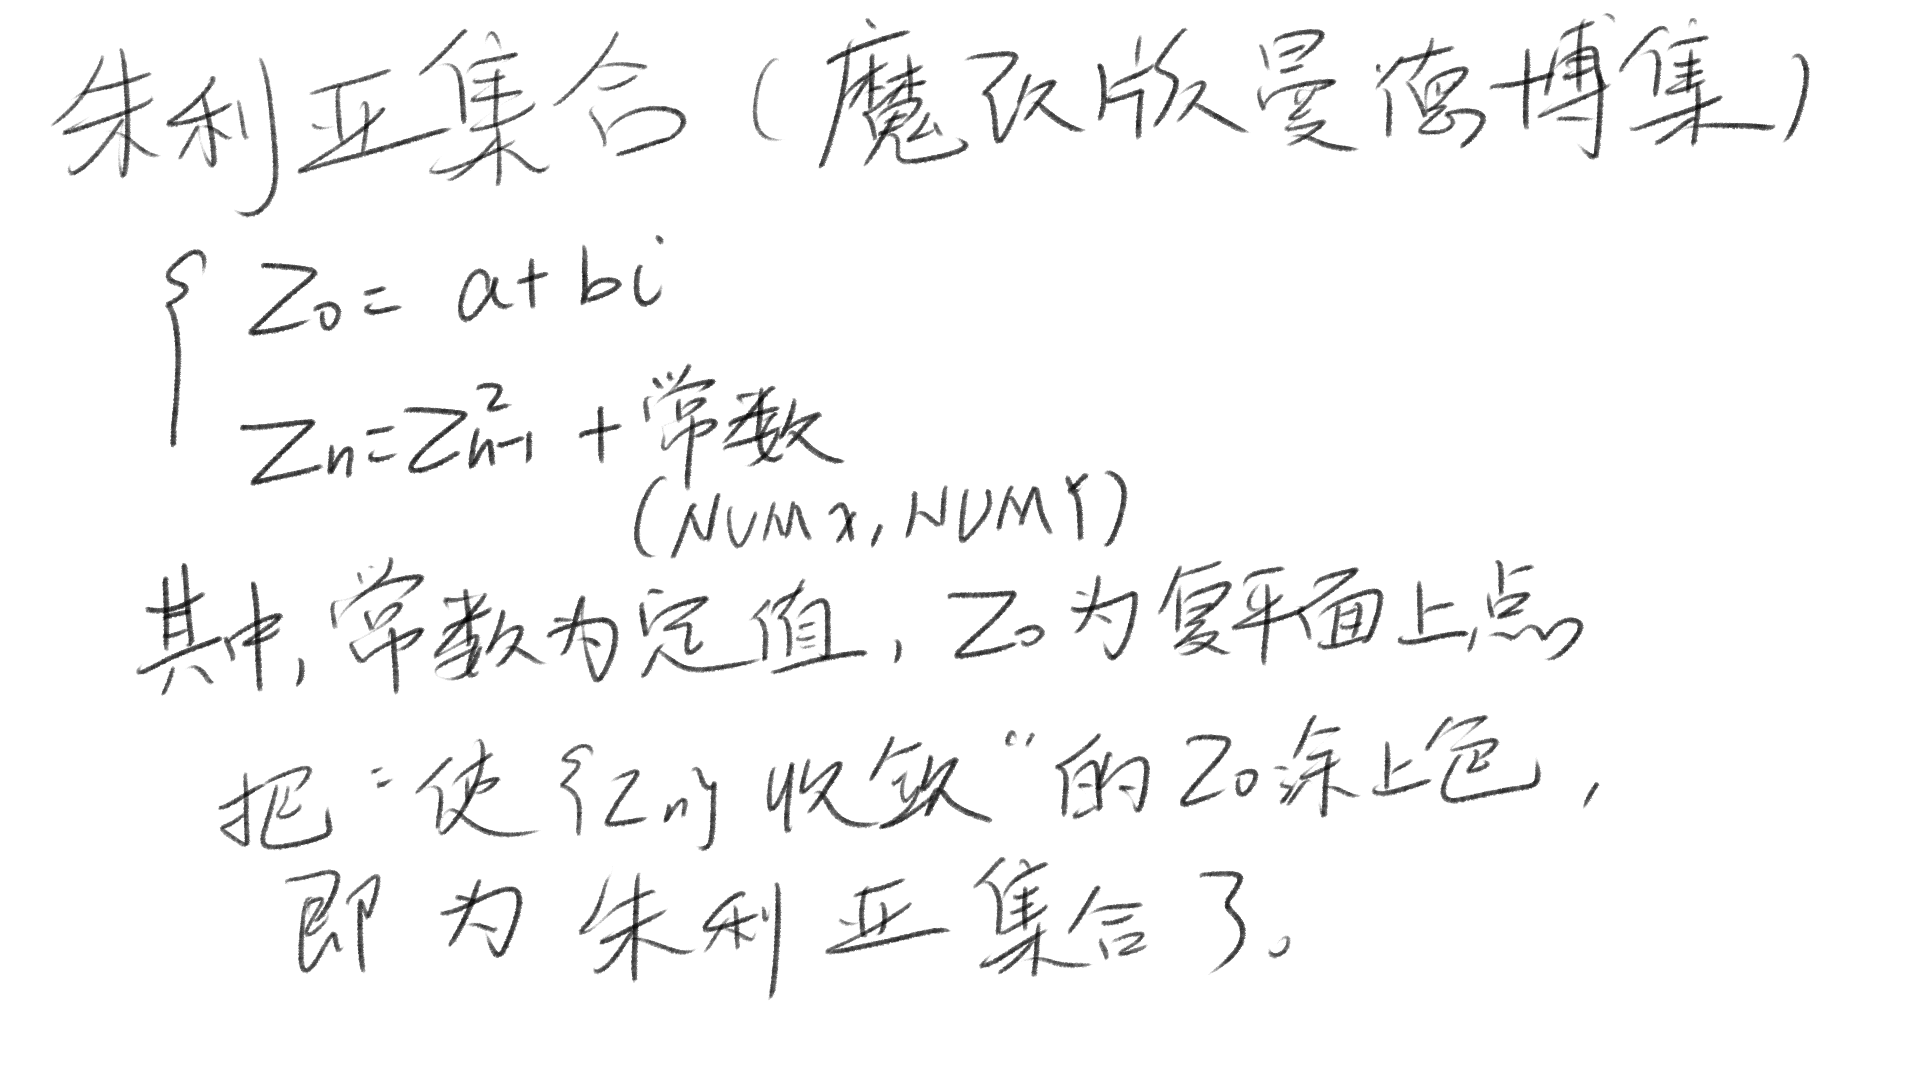 朱利亚集合（魔改版曼德博集）
Z₀= a+bi
Zn=Z²n-1 + 常数
(NUMX, NUMY)
其中,常数为定值,Z₀为复平面上点
把“使{Zn}收敛”的Z₀涂上色,
即为朱利亚集合了。